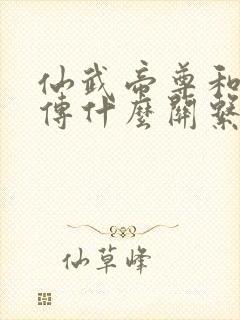 仙武帝尊和
傳什麼關繫
仙草峰